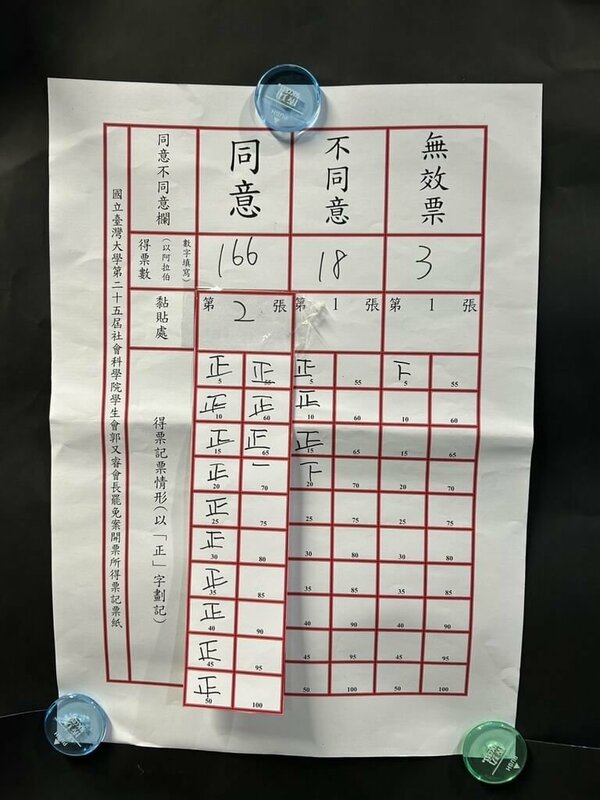 國立臺灣大學第二十五屆社會科學院學生會郭又睿會長罷免案開票所得票記票紙
同意不同意欄 同意 不同意 無效票
得票數(以阿拉伯數字填寫) 166 18 3
黏貼處 第 2 張 第 1 張 第 1 張
得票記票情形(以「正」字劃記)
正 5 正 55 正 5 55 下 5 55
正 10 正 60 正 10 60 10 60
正 15 正 65 正 15 65 15 65
正 20 一 70 下 20 70 20 70
正 25 75 25 75 25 75
正 30 80 30 80 30 80
正 35 85 35 85 35 85
正 40 90 40 90 40 90
正 45 95 45 95 45 95
正 50 100 50 100 50 100